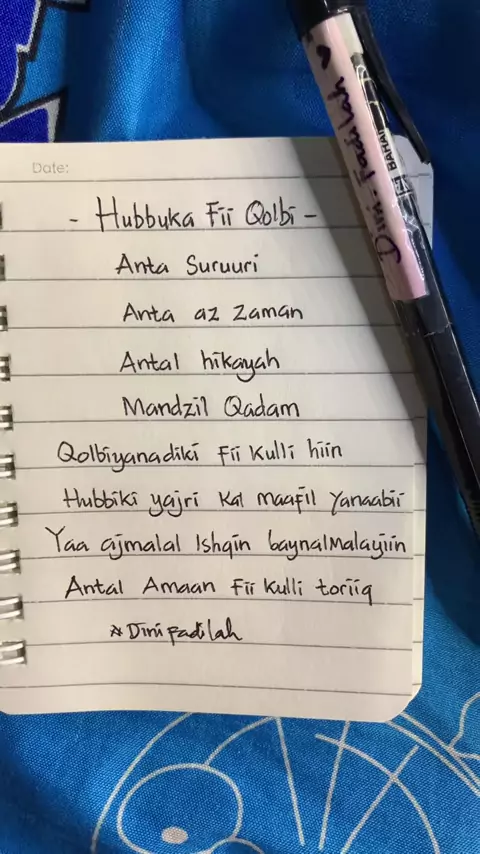 Date:
- Hubbuka Fii Qolbi -
Anta Suruuri
Anta az Zaman
Antal hikayah
Mandzil Qadam
Qolbiyanadiki Fii Kulli hiin
Hubbiki yajri kal maafil Yanaabii
Yaa ajmalal Ishqin baynalMalayiin
Antal Amaan Fii Kulli toriiq
*Dini Fadilah
Dini. Fadilah ♥